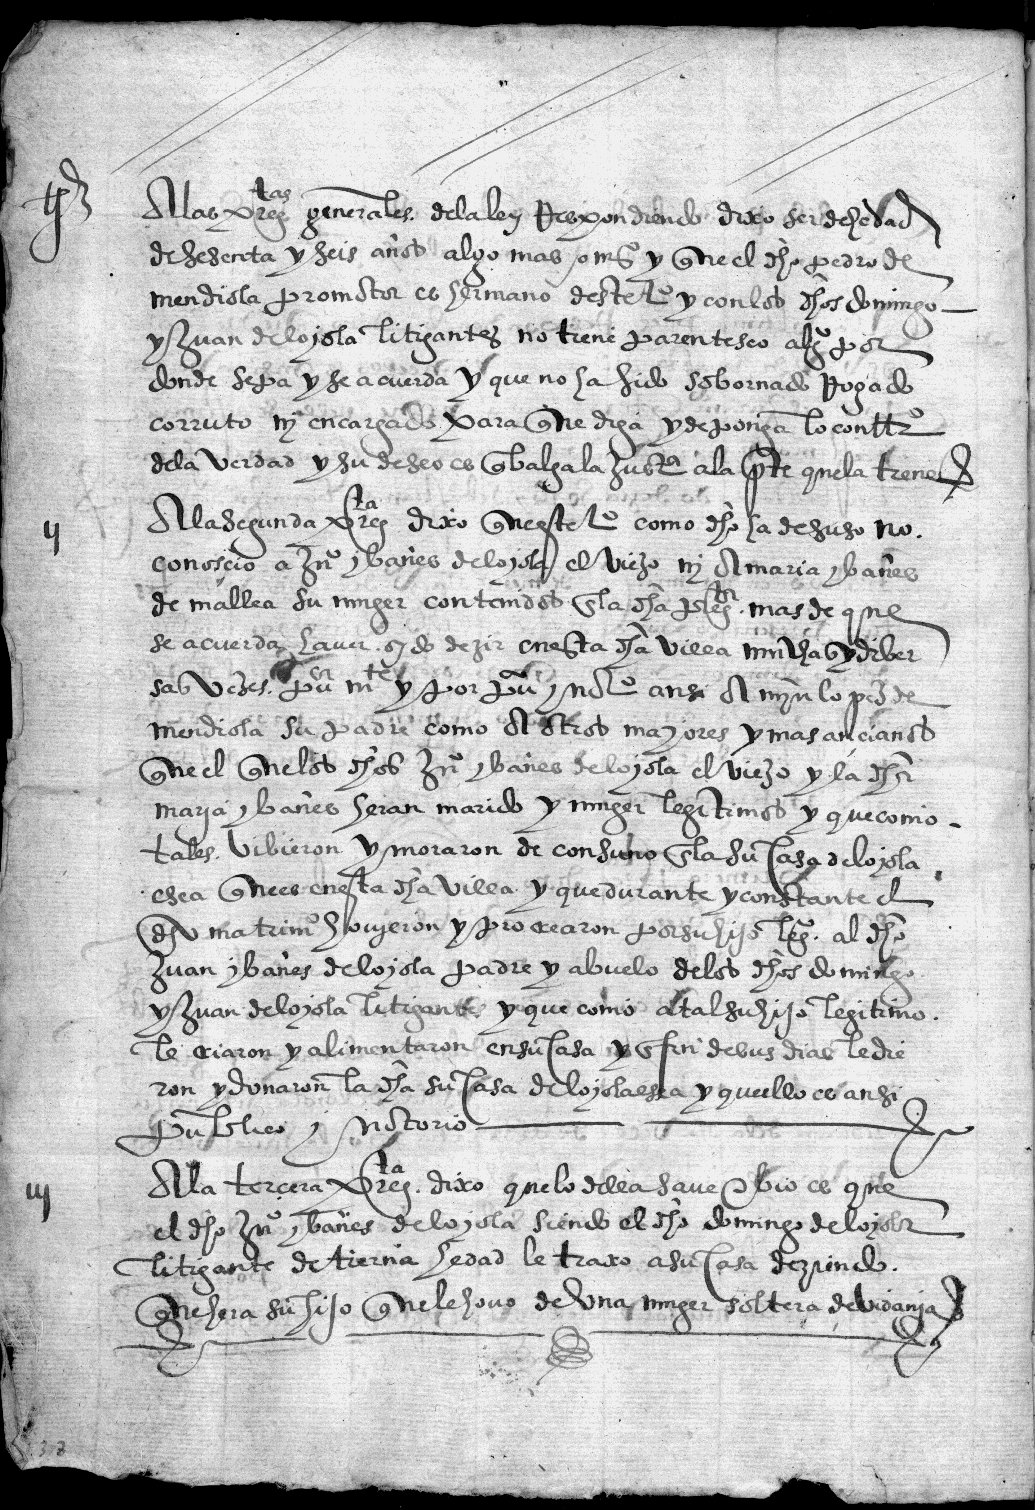 tº
A las pregtas generales de la ley Respondiendo dixo ser de hedad
de sesenta y seis años algo mas o ms y que el dho pedro de
mendiola promotor es hermano deste tº y con los dhos domingo
y Juan de loyola litigantes no tiene parentesco algº por
donde sepa y se acuerda y que no ha sido sobornado Rogado
corruto ny encargado para que diga y deponga lo conttrº
de la verdad y su deseo es q balga la Justª a la pte que la tiene
ij
A la segunda pregta dixo que este tº como dho ha de suso no
conoscio a Juº ybañes de loyola el viejo ny A maria ybañes
de mallea su muger contenidos en la dha pregta mas de que
se acuerda haver oydo dezir en esta dha villa muchas y diber
sas vezes puca mte y por puco y notº ansi A myn lopez de
mendiola su padre como A otros mayores y mas ancianos
que el que los dhos Juº ybañes de loyola el viejo y la dha
maria ybañes heran marido y muger legitimos y que como
tales vibieron y moraron de consuno en la su casa de loyola
esea que es en esta dha villa y que durante y constante el
dho matrimº hovyeron y procrearon por su hijo legº al dho
Juan ybañes de loyola padre y abuelo de los dhos domingo
y Juan de loyola litigantes y que como a tal su hijo legitimo
le criaron y alimentaron en su casa y en fin de sus dias le die
ron y donaron la dha su casa de loyola esea y que ello es ansi
publico y notorio
iij
A la tercera pregta dixo que lo della save e bio es que
el dho Juº ybañes de loyola siendo el dho domingo de loyola
litigante de tierna hedad le traxo a su casa deziendo
que hera su hijo que le hovo de vna muger soltera de vidania